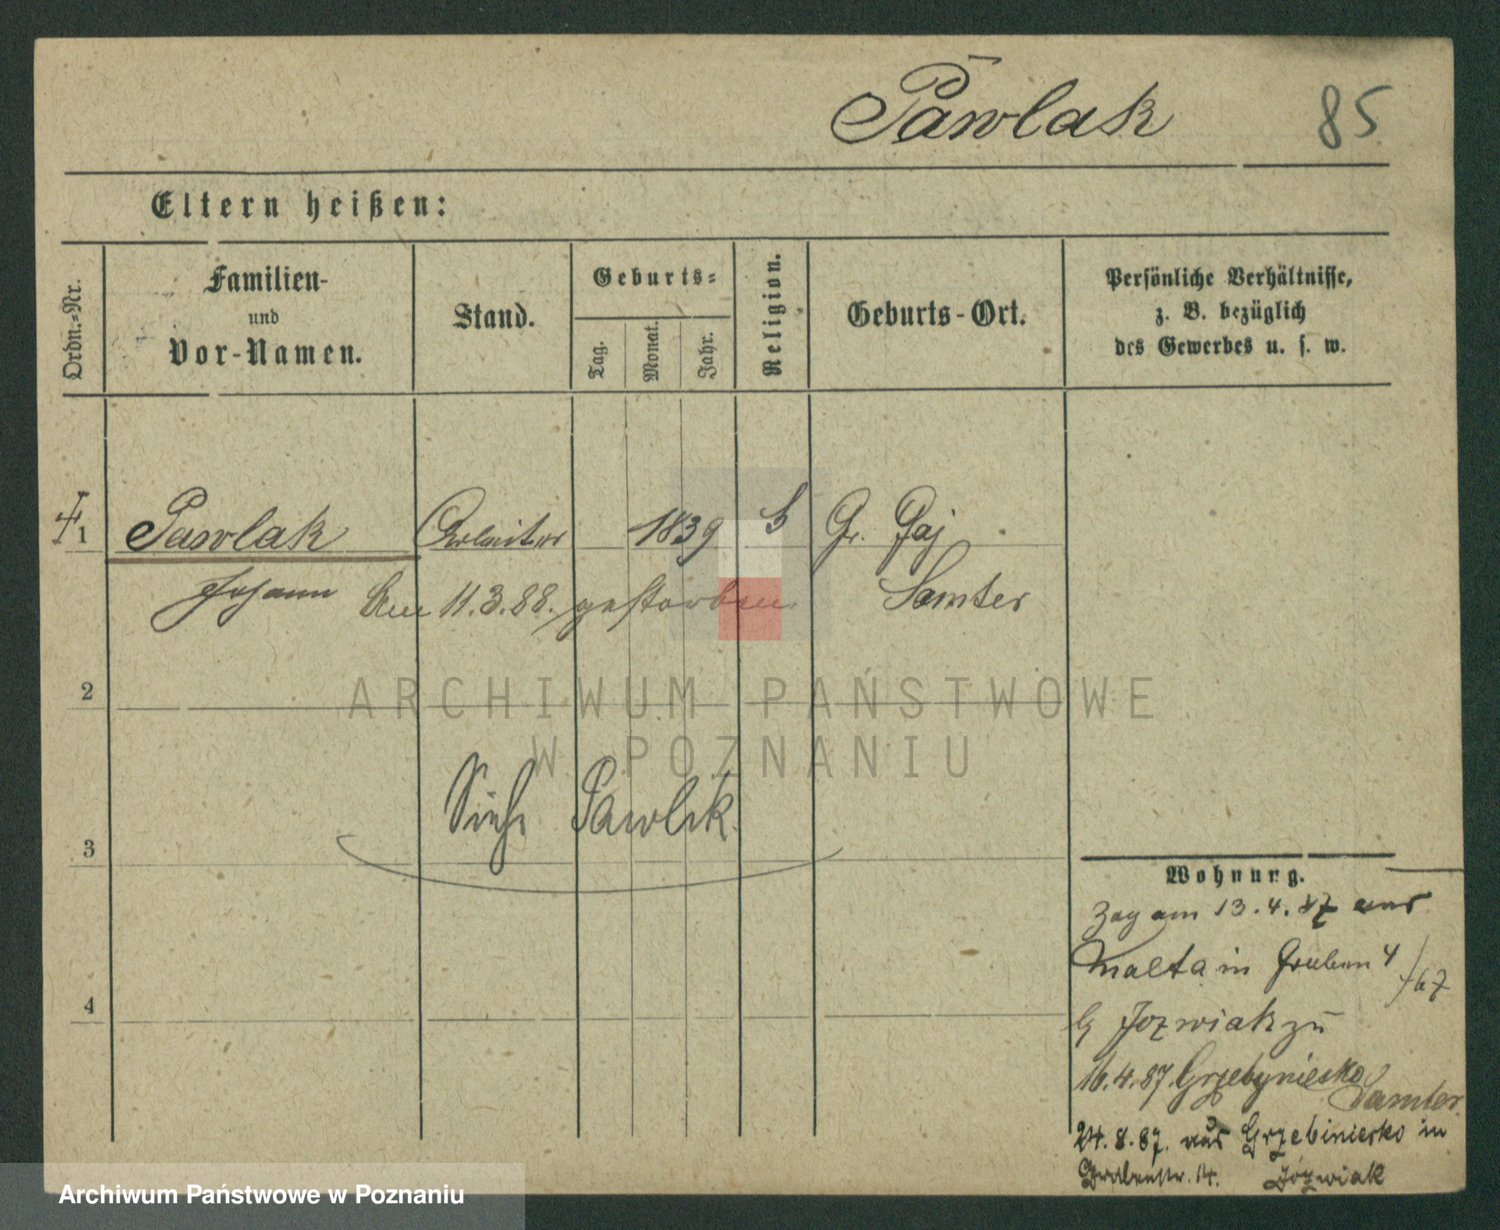 Pawlak 85
Eltern heißen:
Ordn.-Nr.
Familien-
und
Vor-Namen.
Stand.
Geburts-
Tag.
Monat.
Jahr.
Religion.
Geburts-Ort.
Persönliche Verhältnisse,
z. B. bezüglich
des Gewerbes u. s. w.
1 Pawlak Arbeiter 1839 Gr. Gaj
Johann Am 11.3.88. gestorben. Samter
2
ARCHIWUM PAŃSTWOWE
W POZNANIU
Siehe Pawlik.
3
Wohnung.
Zog am 13.4.87 aus
Malta in Graben 4
b Jozwiak zu
16.4.87. Grzebyniesko
Samter
4
24.8.87. aus Grzebiniesko in
Grabenstr. 14. Józwiak
Archiwum Państwowe w Poznaniu